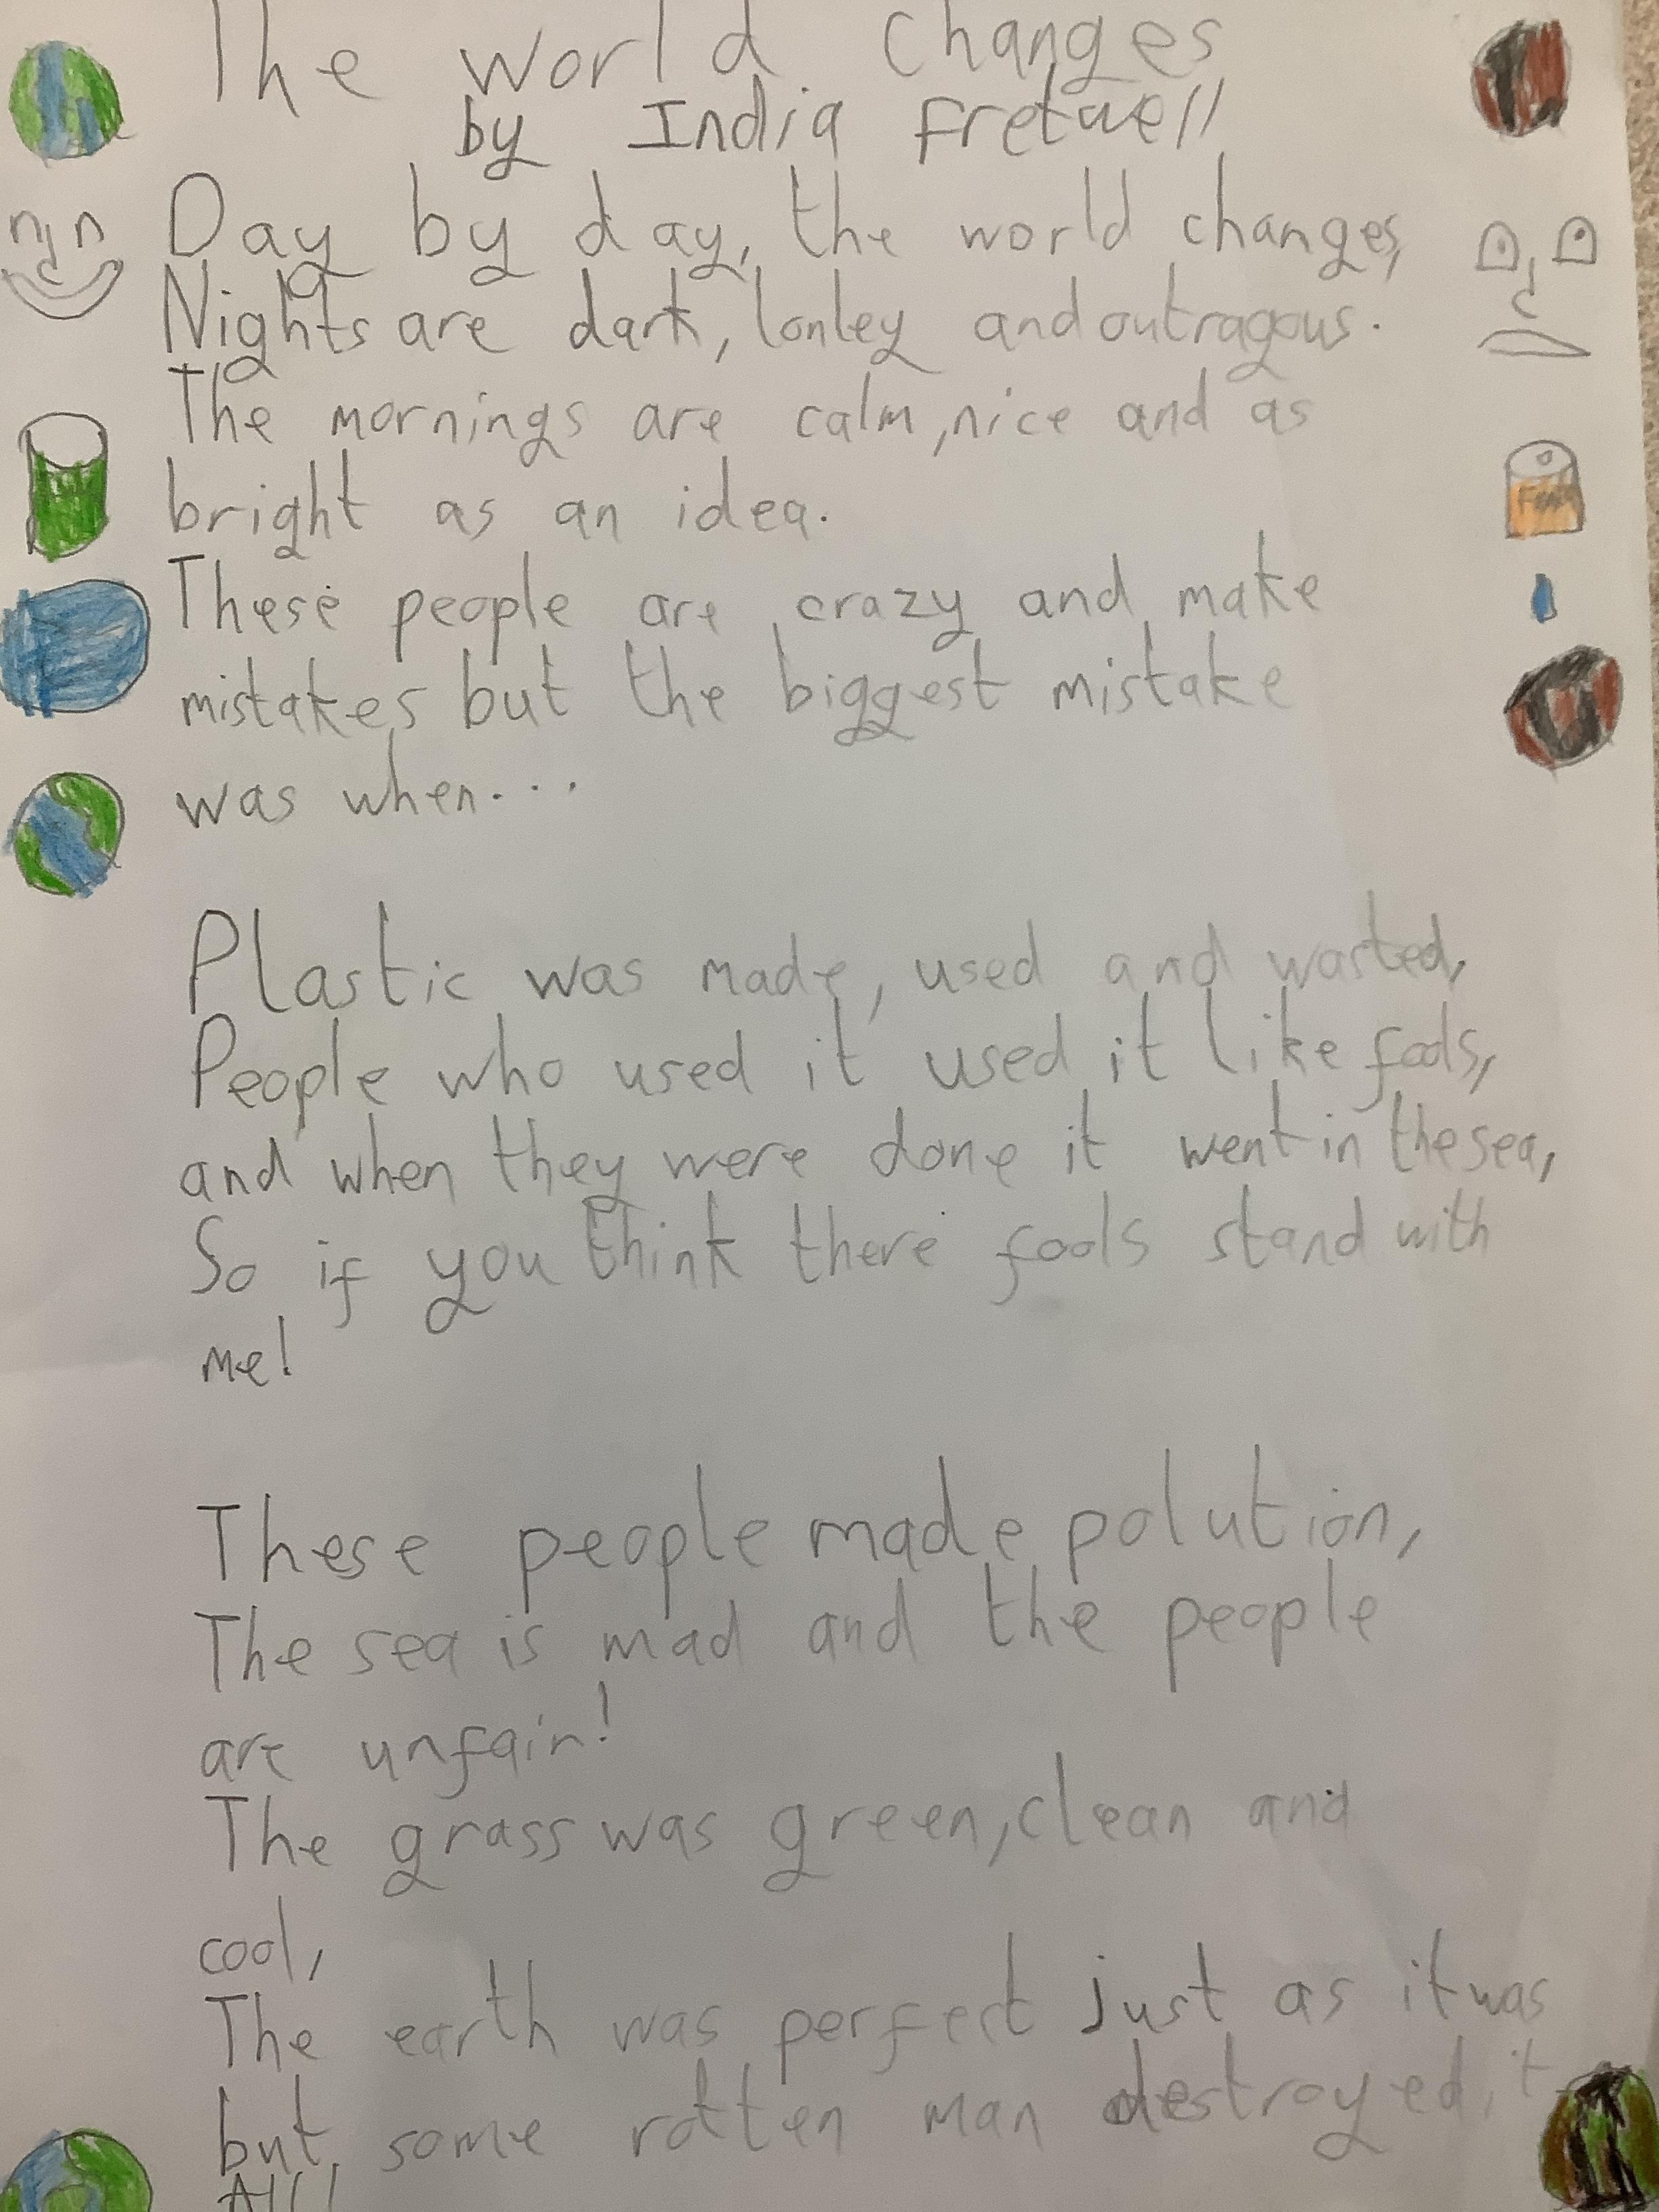 The world changes
by India Fretwell
Day by day, the world changes,
Nights are dark, lonley and outragous.
The mornings are calm, nice and as
bright as an idea.
These people are crazy and make
mistakes but the biggest mistake
was when...
Plastic was made, used and wasted,
People who used it used it like fools,
and when they were done it went in the sea,
So if you think there fools stand with
me!
These people made polution,
The sea is mad and the people
are unfair!
The grass was green, clean and
cool,
The earth was perfect just as it was
but some rotten man destroyed it
All!